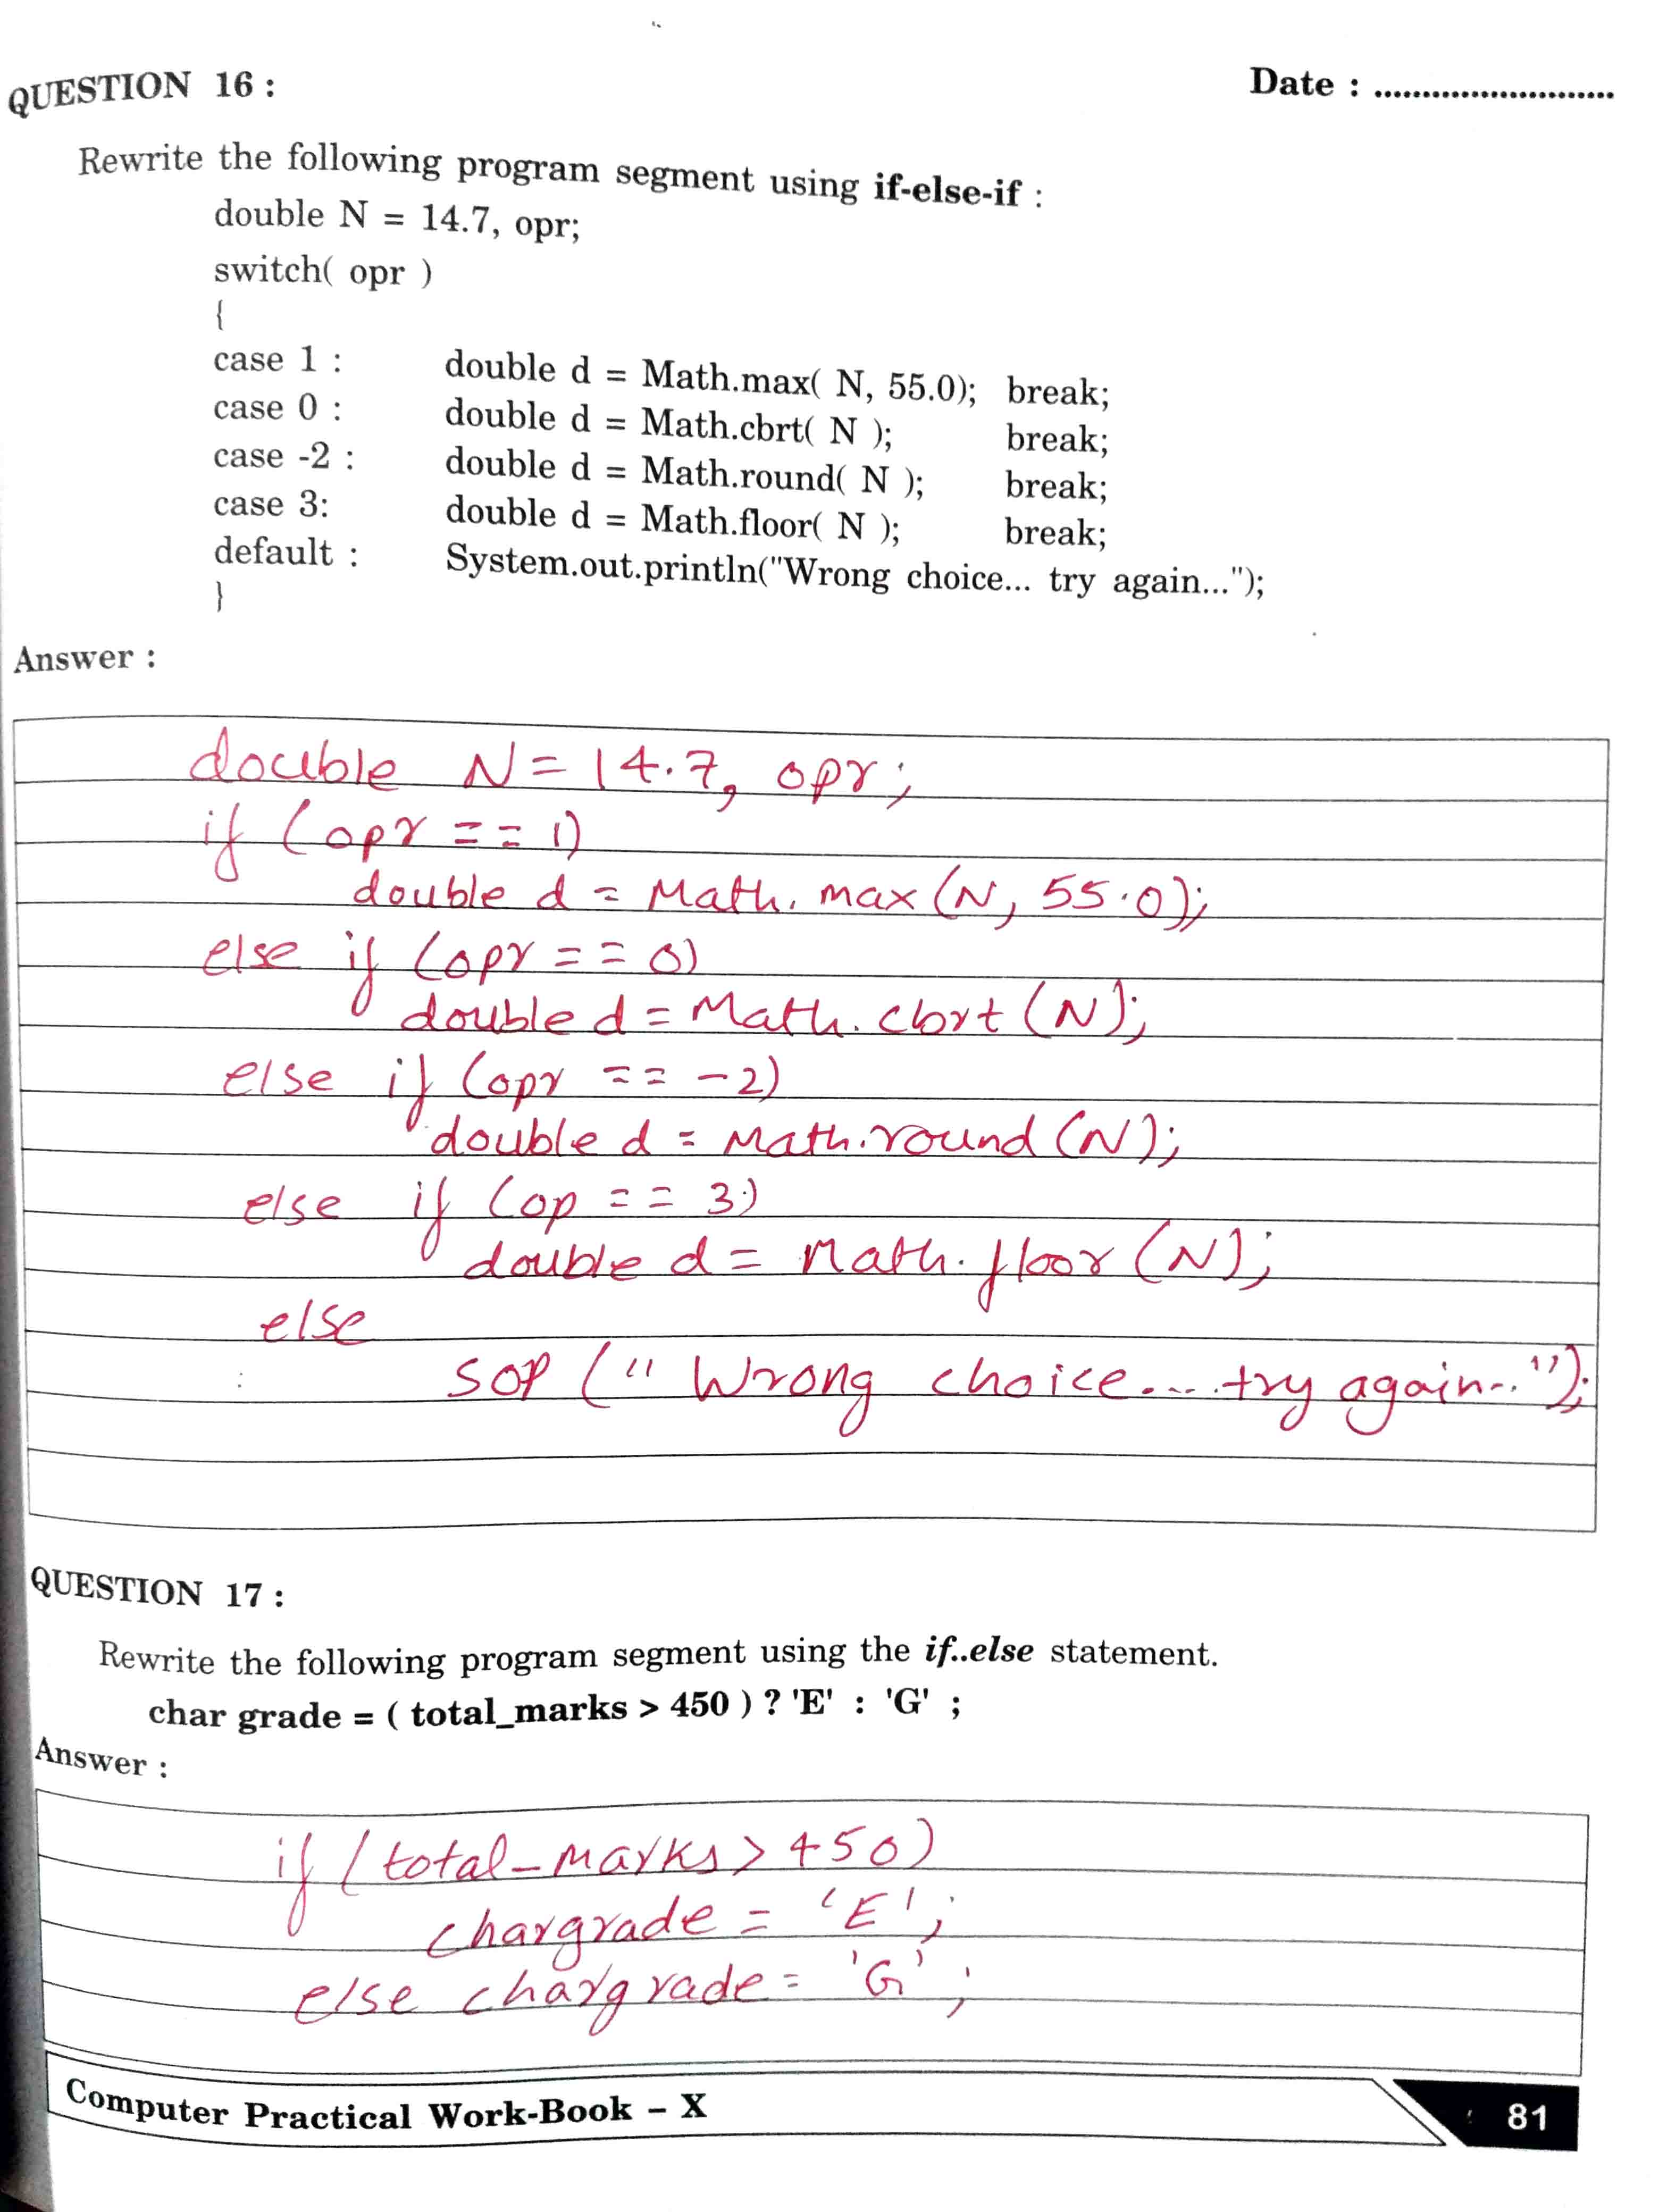 QUESTION 16 :
Date : ..........................
Rewrite the following program segment using if-else-if :
double N = 14.7, opr;
switch( opr )
{
case 1 : double d = Math.max( N, 55.0); break;
case 0 : double d = Math.cbrt( N ); break;
case -2 : double d = Math.round( N ); break;
case 3: double d = Math.floor( N ); break;
default : System.out.println("Wrong choice... try again...");
}
Answer :
double N = 14.7, opr;
if (opr == 1)
double d = Math. max (N, 55.0);
else if (opr == 0)
double d = Math. cbrt (N);
else if (opr == -2)
double d = Math.round (N);
else if (op == 3)
double d = Math. floor (N);
else
sop (" Wrong choice.... try again...");
QUESTION 17 :
Rewrite the following program segment using the if..else statement.
char grade = ( total_marks > 450 ) ? 'E' : 'G' ;
Answer :
if (total_marks > 450)
chargrade = 'E';
else chargrade = 'G' ;
Computer Practical Work-Book – X
81